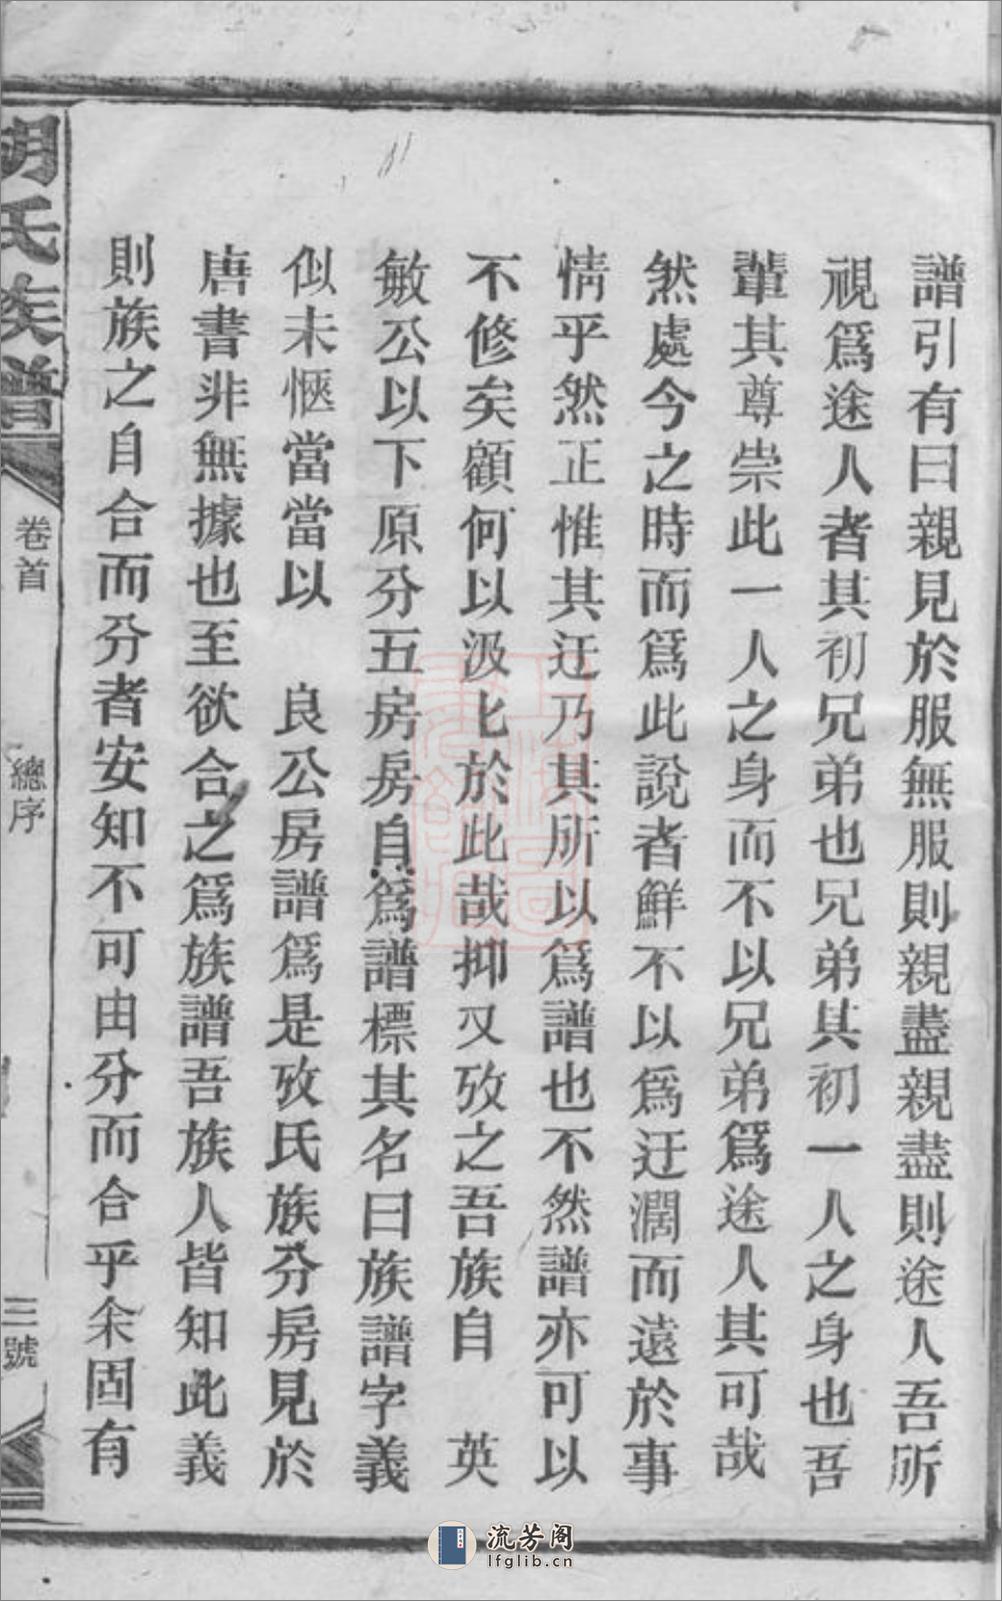 譜引有曰親見於服無服則親盡親盡則途人吾所
視爲途人者其初兄弟也兄弟其初一人之身也吾
輩其尊崇此一人之身而不以兄弟爲途人其可哉
然處今之時而爲此說者鮮不以爲迂濶而遠於事
情乎然正惟其迂乃其所以爲譜也不然譜亦可以
不修矣顧何以汲汲於此哉抑又攷之吾族自　英
敏公以下原分五房房自爲譜標其名曰族譜字義
似未愜當當以　良公房譜爲是攷氏族分房見於
唐書非無據也至欲合之爲族譜吾族人皆知此義
則族之自合而分者安知不可由分而合乎余固有
胡氏族譜
卷首
總序
三號
流芳阁
lfglib.cn